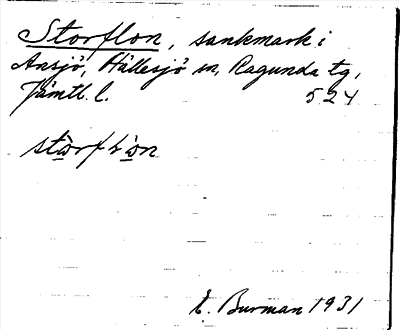 Storflon, sankmark i
Ansjö, Hällesjö sn, Ragunda tg,
Jämtl. l. 524
E. Burman 1931